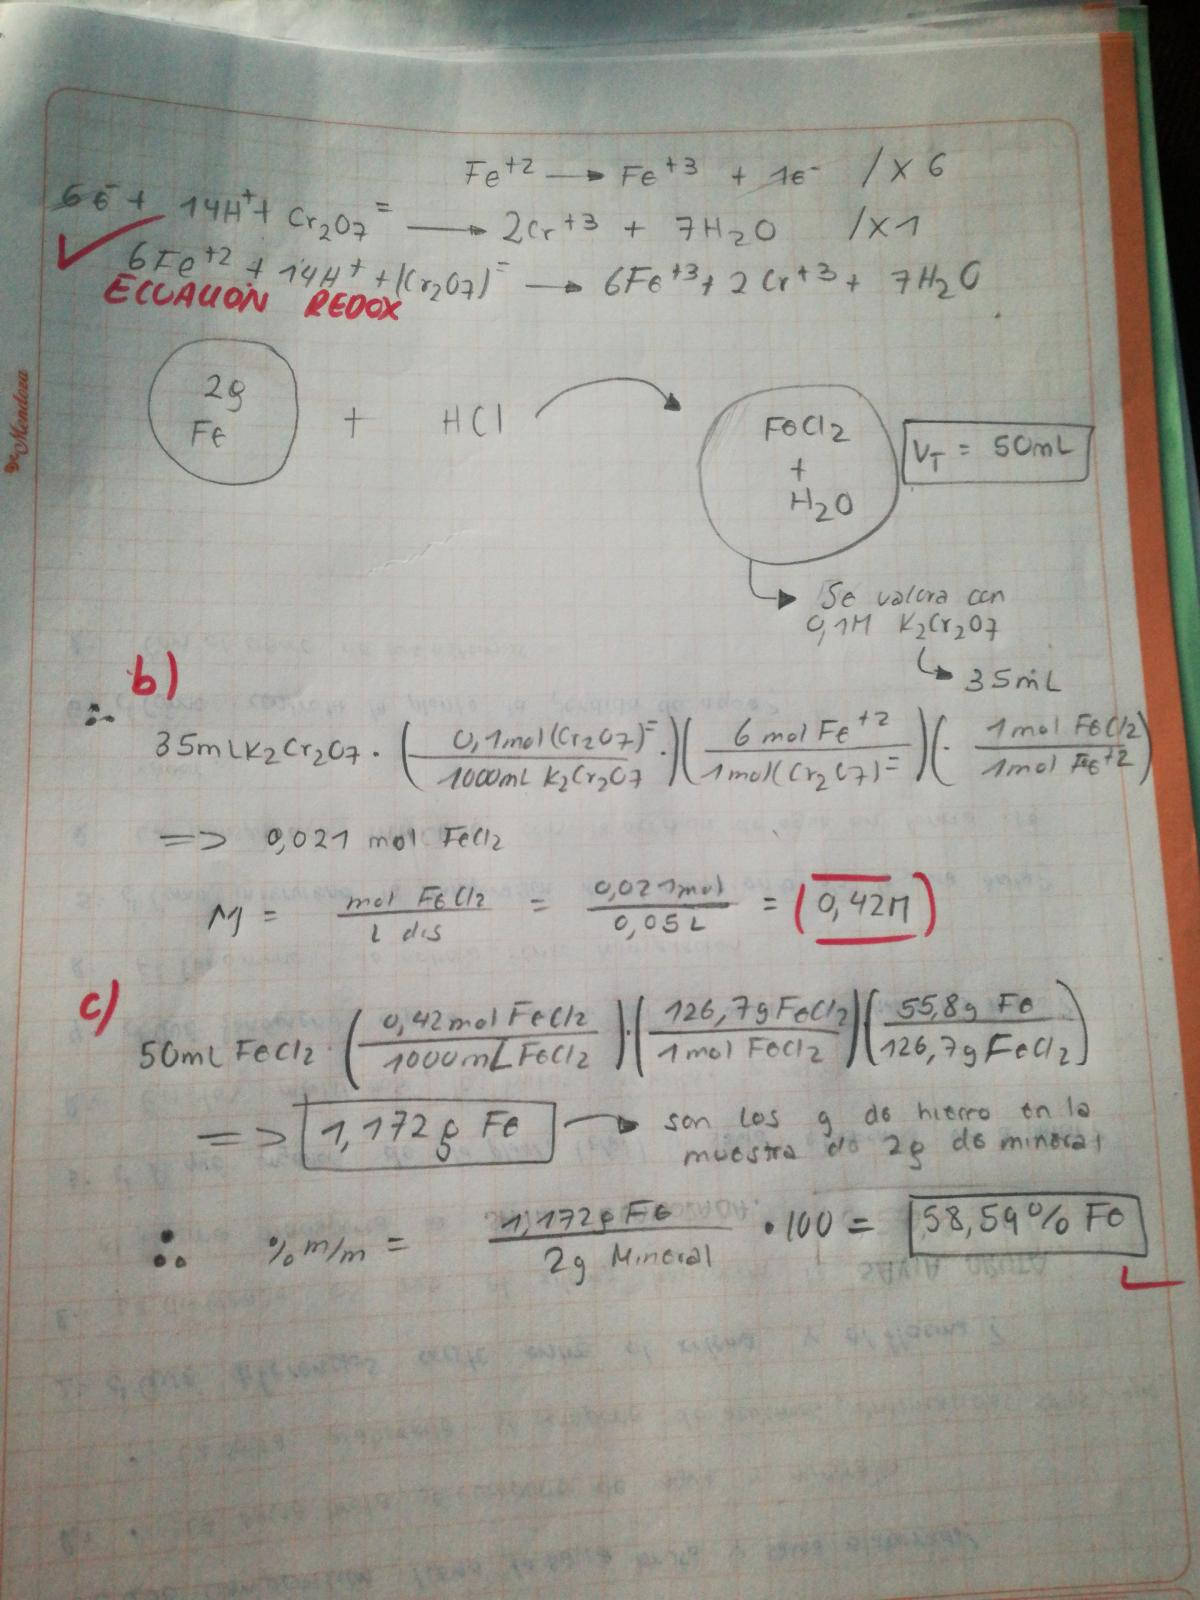 Fe⁺² → Fe⁺³ + 1e⁻ /x6
6e⁻ + 14H⁺ + Cr₂O₇⁼ → 2Cr⁺³ + 7H₂O /x1
6Fe⁺² + 14H⁺ + (Cr₂O₇)⁼ → 6Fe⁺³ + 2Cr⁺³ + 7H₂O
ECUACION REDOX
Mendoza
2g
Fe
+ HCl
FeCl₂
+
H₂O
V_T = 50mL
Se valora con
0,1M K₂Cr₂O₇
35mL
b)
∴ 35mL K₂Cr₂O₇ · (0,1mol(Cr₂O₇)⁼ / 1000mL K₂Cr₂O₇ ·)(6 mol Fe⁺² / 1mol(Cr₂O₇)⁼)(· 1mol FeCl₂ / 1mol Fe⁺²)
=> 0,021 mol FeCl₂
M = mol FeCl₂ / L dis = 0,021mol / 0,05L = (0,42M)
c)
50mL FeCl₂ · (0,42mol FeCl₂ / 1000mL FeCl₂)·(126,7g FeCl₂ / 1mol FeCl₂)(55,8g Fe / 126,7g FeCl₂)
=> 1,172g Fe → son los g de hierro en la
muestra de 2g de mineral
∴ % m/m = 1,172g Fe / 2g Mineral · 100 = 58,59% Fe